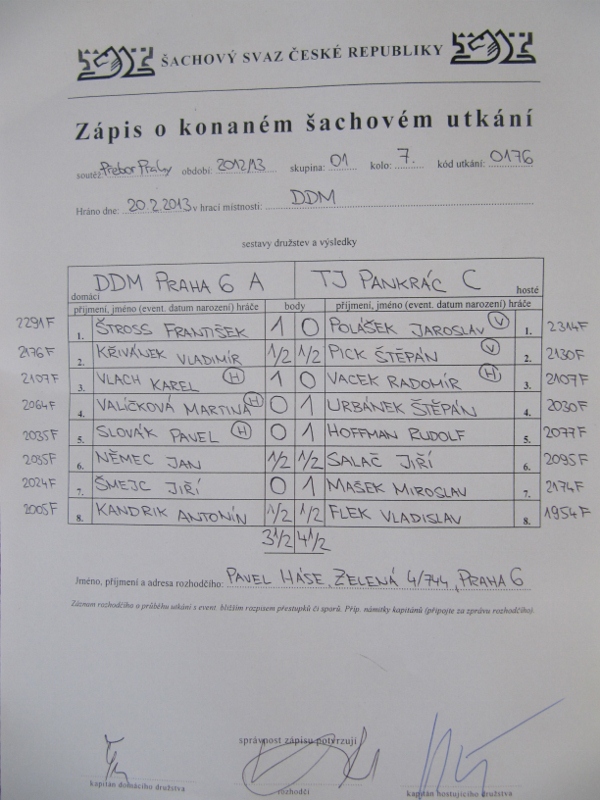 ŠACHOVÝ SVAZ ČESKÉ REPUBLIKY
Zápis o konaném šachovém utkání
soutěž: Přebor Prahy období: 2012/13 skupina: 01 kolo: 7. kód utkání: 0176
Hráno dne: 20.2.2013 v hrací místnosti: DDM
sestavy družstev a výsledky
DDM PRAHA 6 A TJ PANKRÁC C
domácí hosté
příjmení, jméno (event. datum narození) hráče body příjmení, jméno (event. datum narození) hráče
2291F 1. ŠTROSS FRANTIŠEK 1 0 POLÁŠEK JAROSLAV V 1. 2314F
2176F 2. KŘIVÁNEK VLADIMÍR 1/2 1/2 PICK ŠTĚPÁN V 2. 2130F
2107F 3. VLACH KAREL H 1 0 VACEK RADOMÍR H 3. 2107F
2064F 4. VALÍČKOVÁ MARTINA H 0 1 URBÁNEK ŠTĚPÁN 4. 2030F
2035F 5. SLOVÁK PAVEL H 0 1 HOFFMAN RUDOLF 5. 2077F
2035F 6. NĚMEC JAN 1/2 1/2 SALAČ JIŘÍ 6. 2095F
2024F 7. ŠMEJC JIŘÍ 0 1 MAŠEK MIROSLAV 7. 2174F
2005F 8. KANDRIK ANTONÍN 1/2 1/2 FLEK VLADISLAV 8. 1954F
3 1/2 4 1/2
Jméno, příjmení a adresa rozhodčího: PAVEL HÁSE, ZELENÁ 4/744, PRAHA 6
Záznam rozhodčího o průběhu utkání s event. bližším rozpisem přestupků či sporů. Příp. námitky kapitánů (připojte za zprávu rozhodčího).
správnost zápisu potvrzují
kapitán domácího družstva rozhodčí kapitán hostujícího družstva